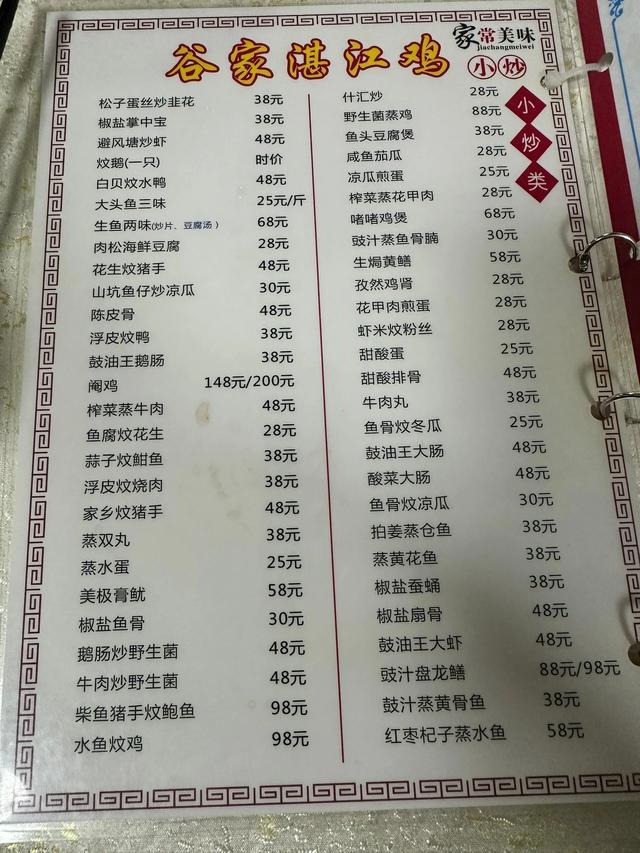 谷家湛江鸡
家常美味
jiachangmeiwei
小炒
小炒类
松子蛋丝炒韭花 38元
椒盐掌中宝 38元
避风塘炒虾 48元
炆鹅(一只) 时价
白贝炆水鸭 48元
大头鱼三味 25元/斤
生鱼两味(炒片、豆腐汤) 68元
肉松海鲜豆腐 28元
花生炆猪手 48元
山坑鱼仔炒凉瓜 30元
陈皮骨 48元
浮皮炆鸭 38元
鼓油王鹅肠 38元
阉鸡 148元/200元
榨菜蒸牛肉 48元
鱼腐炆花生 28元
蒜子炆鮀鱼 38元
浮皮炆烧肉 38元
家乡炆猪手 48元
蒸双丸 38元
蒸水蛋 25元
美极膏鱿 58元
椒盐鱼骨 30元
鹅肠炒野生菌 48元
牛肉炒野生菌 48元
柴鱼猪手炆鲍鱼 98元
水鱼炆鸡 98元
什汇炒 28元
野生菌蒸鸡 88元
鱼头豆腐煲 38元
咸鱼茄瓜 28元
凉瓜煎蛋 25元
榨菜蒸花甲肉 28元
啫啫鸡煲 68元
豉汁蒸鱼骨腩 30元
生焗黄鳝 58元
孜然鸡肾 28元
花甲肉煎蛋 28元
虾米炆粉丝 28元
甜酸蛋 25元
甜酸排骨 48元
牛肉丸 38元
鱼骨炆冬瓜 25元
鼓油王大肠 48元
酸菜大肠 48元
鱼骨炆凉瓜 30元
拍姜蒸仓鱼 38元
蒸黄花鱼 38元
椒盐蚕蛹 38元
椒盐扇骨 48元
鼓油王大虾 48元
豉汁盘龙鳝 88元/98元
鼓汁蒸黄骨鱼 38元
红枣杞子蒸水鱼 58元